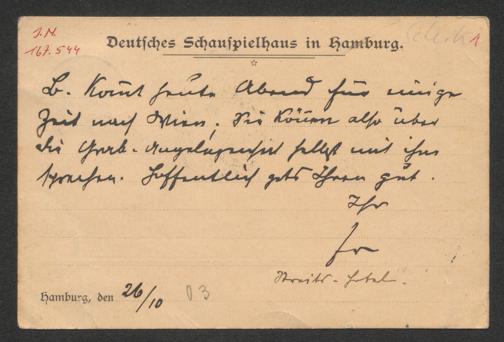 J.N.
167.544
1
Deutsches Schauspielhaus in Hamburg.
B. kommt heute Abend für einige
Zeit nach Wien, Sie können also über
die Grab-Angelegenheit selbst mit ihm
sprechen. Hoffentlich gehts Ihnen gut.
Ihr
Hamburg, den 26/10 03